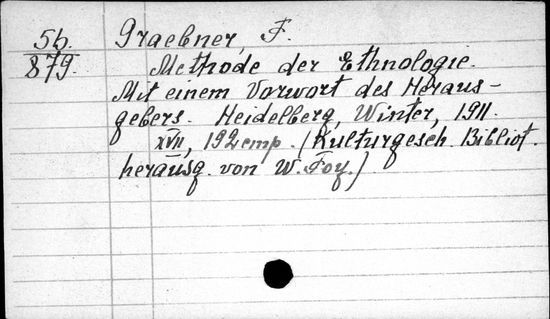 56. Graebner, F.
879. Methode der Ethnologie.
Mit einem Vorwort des Heraus-
gebers. Heidelberg, Winter, 1911.
XVII, 192 стр. (Kulturgesch. Bibliot.
herausg. von W. Foy.)